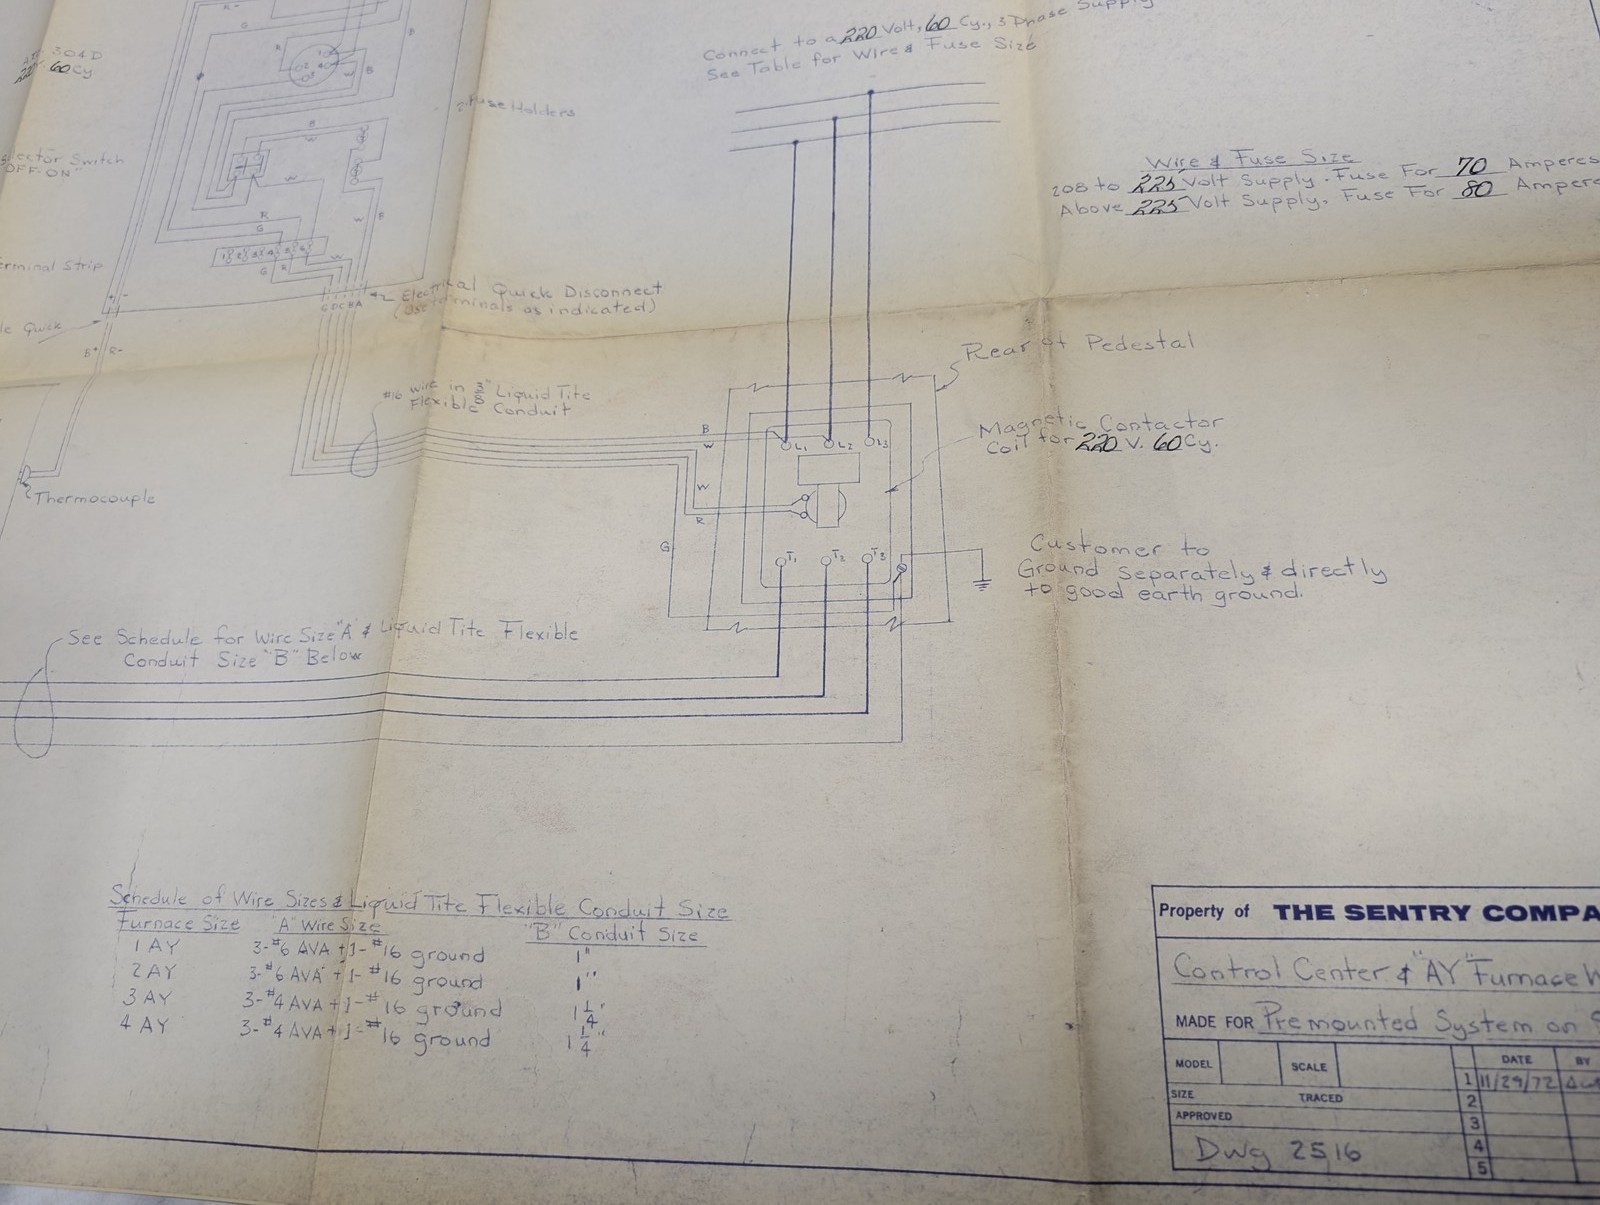 Connect to a 220 Volt, 60 Cy., 3 Phase Supply
See Table for Wire & Fuse Size
304D
60 Cy
Fuse Holders
Selector Switch
"OFF-ON"
Wire & Fuse Size
208 to 225 Volt Supply. Fuse For 70 Amperes
Above 225 Volt Supply. Fuse For 80 Ampere
Terminal Strip
Electrical Quick Disconnect
(Use terminals as indicated)
Quick
B+ R-
Rear of Pedestal
#16 wire in 3/8" Liquid Tite
Flexible Conduit
Magnetic Contactor
Coil for 220 V. 60 Cy.
B
W
L1 L2 L3
W
R
G
Thermocouple
T1 T2 T3
Customer to
Ground separately & directly
to good earth ground.
See Schedule for Wire Size "A" & Liquid Tite Flexible
Conduit Size "B" Below
Schedule of Wire Sizes & Liquid Tite Flexible Conduit Size
Furnace Size "A" Wire Size "B" Conduit Size
1 AY 3-#6 AVA + 1-#16 ground 1"
2 AY 3-#6 AVA + 1-#16 ground 1"
3 AY 3-#4 AVA + 1-#16 ground 1 1/4"
4 AY 3-#4 AVA + 1-#16 ground 1 1/4"
Property of THE SENTRY COMPA
Control Center & "AY" Furnace W
MADE FOR Premounted System on
MODEL SCALE DATE BY
1 11/29/72
SIZE TRACED 2
APPROVED 3
Dwg 2516 4
5